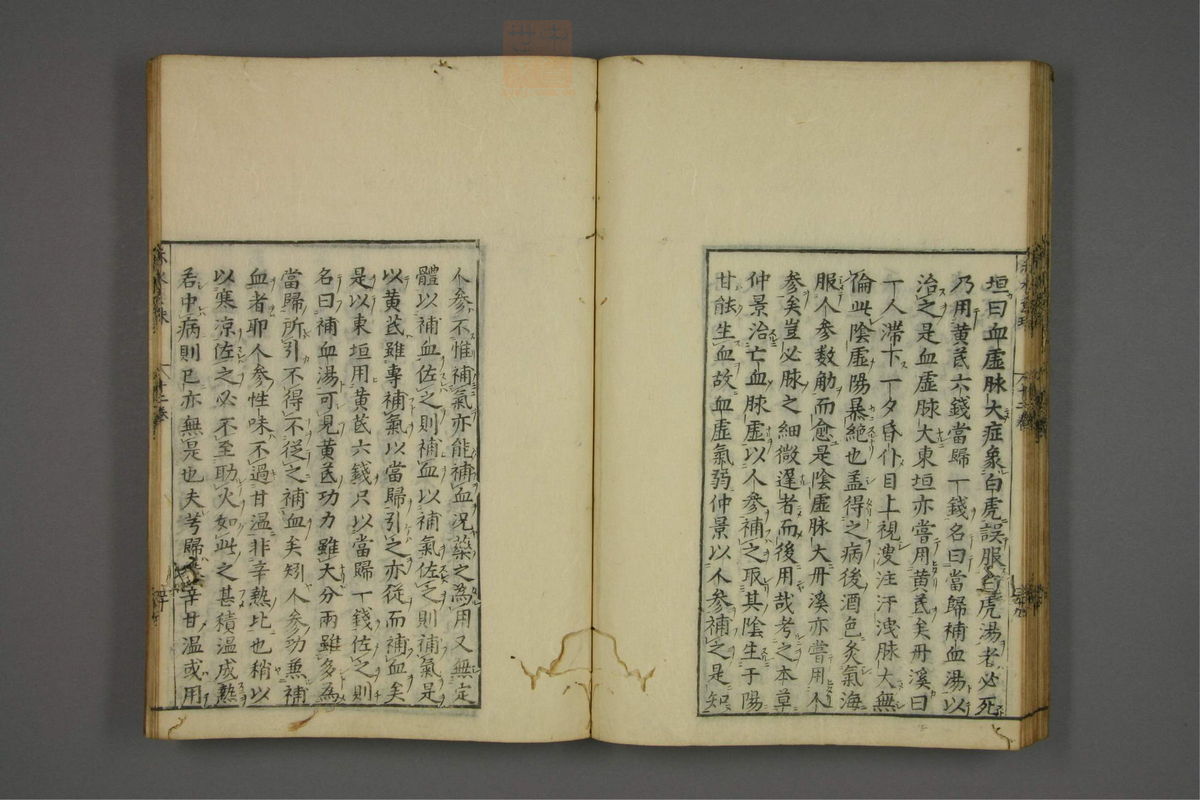 垣曰血虛脉大症象白虎誤服白虎湯者必死
乃用黄芪六錢當歸一錢名曰當歸補血湯以
治之是血虛脉大東垣亦嘗用黄芪矣丹溪曰
一人滯下一夕昏仆目上視溲注汗洩脉大無
倫此陰虛陽暴絶也盖得之病後酒色灸氣海
服人参数觔而愈是陰虛脉大丹溪亦嘗用人
参矣豈必脉之細微遲者而後用哉考之本草
仲景治亡血脉虛以人参補之取其陰生于陽
甘能生血故血虛氣弱仲景以人参補之是知
人参不惟補氣亦能補血况藥之為用又無定
體以補血佐之則補血以補氣佐之則補氣是
以黄芪雖專補氣以當歸引之亦従而補血矣
是以東垣用黄芪六錢只以當歸一錢佐之則
名曰補血湯可見黄芪功力雖大分兩雖多為
當歸所引不得不從之補血矣矧人参功兼補
血者耶人参性味不過甘温非辛熱比也稍以
以寒涼佐之必不至助火如此之甚積温成熱
若中病則已亦無是也夫芎歸辛甘温或用